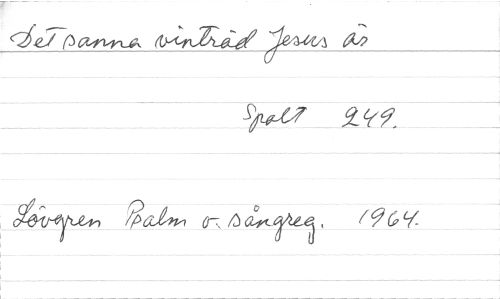 Det sanna vinträd Jesus är
Spalt 249.
Lövgren Psalm o. sångreg. 1964.